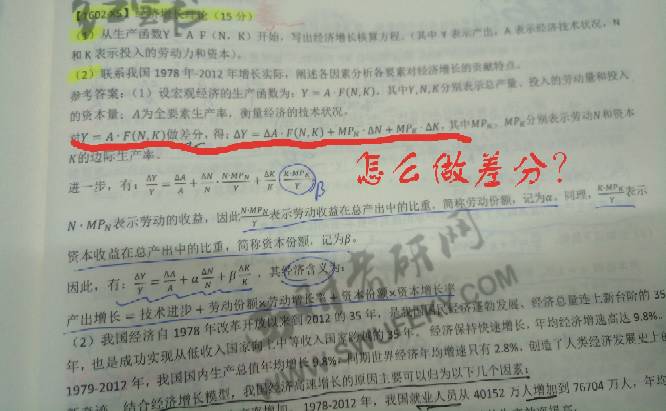 【1602XS】经济增长理论（15 分）
（1）从生产函数Y = A F（N，K）开始，写出经济增长核算方程。（其中 Y 表示产出，A 表示经济技术状况，N
和 K 表示投入的劳动力和资本）。
（2）联系我国 1978 年-2012 年增长实际，阐述各因素分析各要素对经济增长的贡献特点。
参考答案：（1）设宏观经济的生产函数为：Y = A·F(N,K)，其中Y,N,K分别表示总产量、投入的劳动量和投入
的资本量；A为全要素生产率，衡量经济的技术状况。
对Y = A·F(N,K)做差分，得：ΔY = ΔA·F(N,K) + MP_N·ΔN + MP_K·ΔK，其中MP_N、MP_K分别表示劳动N和资本
K的边际生产率。
怎么做差分？
进一步，有：ΔY/Y = ΔA/A + ΔN/N · N·MP_N/Y + ΔK/K · K·MP_K/Y
β
N·MP_N表示劳动的收益，因此N·MP_N/Y表示劳动收益在总产出中的比重，简称劳动份额，记为α。同理，K·MP_K/Y表示
资本收益在总产出中的比重，简称资本份额，记为β。
因此，有：ΔY/Y = ΔA/A + αΔN/N + βΔK/K，其经济含义为：
产出增长 = 技术进步 + 劳动份额×劳动增长率 + 资本份额×资本增长率
（2）我国经济自 1978 年改革开放以来到 2012 的 35 年，是我国国民经济蓬勃发展、经济总量连上新台阶的 35
年，也是成功实现从低收入国家向上中等收入国家跨越的 35 年。经济保持快速增长，年均经济增速高达 9.8%。
1979-2012 年，我国国内生产总值年均增长 9.8%，同期世界经济年均增速只有 2.8%，创造了人类经济发展史上的
新奇迹。结合经济增长模型，我国经济高速增长的原因主要可以归为以下几个因素：
1978-2012 年，我国就业人员从 40152 万人增加到 76704 万人，年均
WWW.SWUFEKY.COM